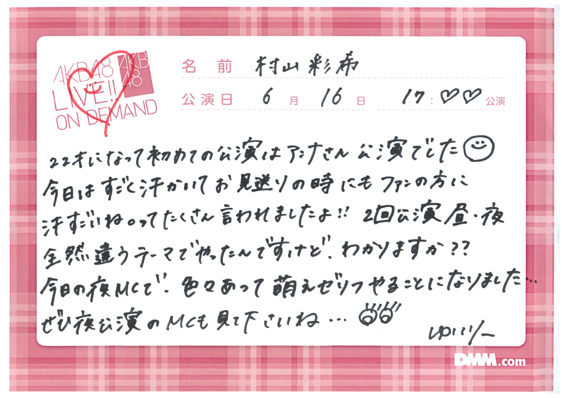 AKB48
LIVE!!
ON DEMAND
AKB
48
名前 村山彩希
公演日 6月16日 17:♡♡公演
22才になって初めての公演はアンナさん公演でした
今日はすごく汗かいてお見送りの時にもファンの方に
汗すごいね。ってたくさん言われましたよ!! 2回公演昼・夜
全然違うテーマでやったんですけど、わかりますか??
今日の夜MCで、色々あって萌えぜりふやることになりました…
ぜひ夜公演のMCも見て下さいね…
ゆいりー
DMM.com